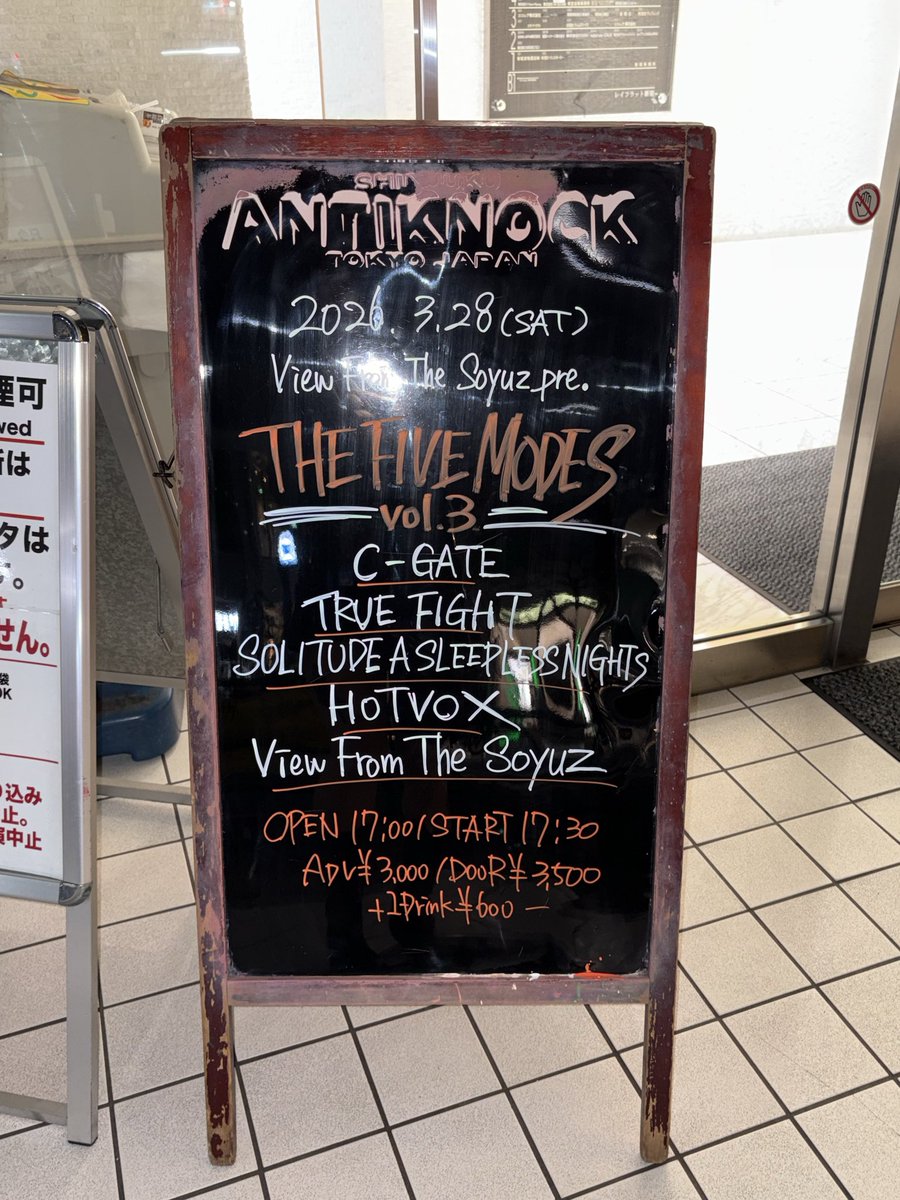 SHINJUKU
ANTIKNOCK
TOKYO JAPAN
2026. 3.28 (SAT)
View From The Soyuz pre.
THE FIVE MODES
vol.3
C-GATE
TRUE FIGHT
SOLITUDE A SLEEPLESS NIGHTS
HOTVOX
View From The Soyuz
OPEN 17:00 / START 17:30
ADV ¥3,000 / DOOR ¥3,500
+1Drink ¥600 —
煙可
wed
は
タは
。
せん。
袋
OK
り込み
止。
演中止